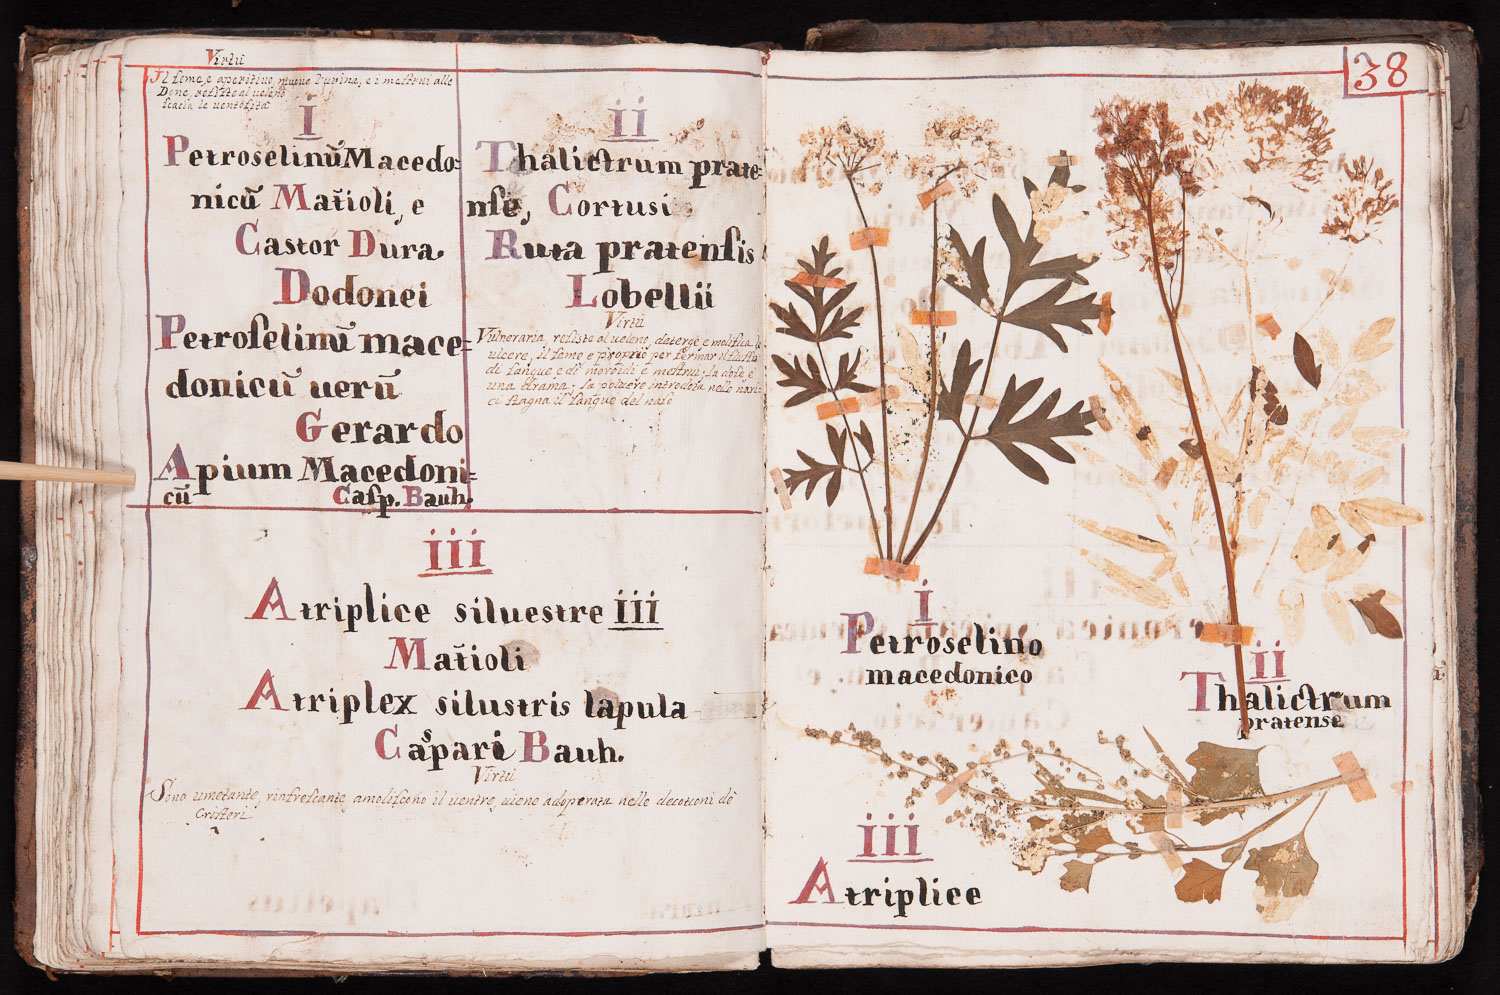 Virtù
Il seme, e aperitivo, muove l'urina, e i mestrui alle
Done, resiste al veleno
scacia le ventosità
i
Petroselinũ Macedo:
nicũ Matioli, e
Castor Dura.
Dodonei
Petroselinũ mace:
donicũ uerũ
Gerardo
Apium Macedoni:
cũ Casp. Bauh.
ii
Thalictrum prate:
nse, Cortusi
Ruta pratensis
Lobellii
Virtù
Vulneraria, resiste al veleno, deterge e molifica le
ulcere, il seme e proprio per fermar il flusso
di sangue e di moroidi e mestrui. la dose è
una drama. la polvere introdota nelle nari:
ci stagna il sangue del naso
iii
Atriplice siluestre iii
Matioli
Atriplex silustris lapula
Caspari Bauh.
Virtù
Sono umetante, rinfrescante, amoliscono il uentre, uiene adoperata nelle decotioni de
Cristeri
38
i
Petroselino
macedonico
ii
Thalictrum
pratense
iii
Atriplice